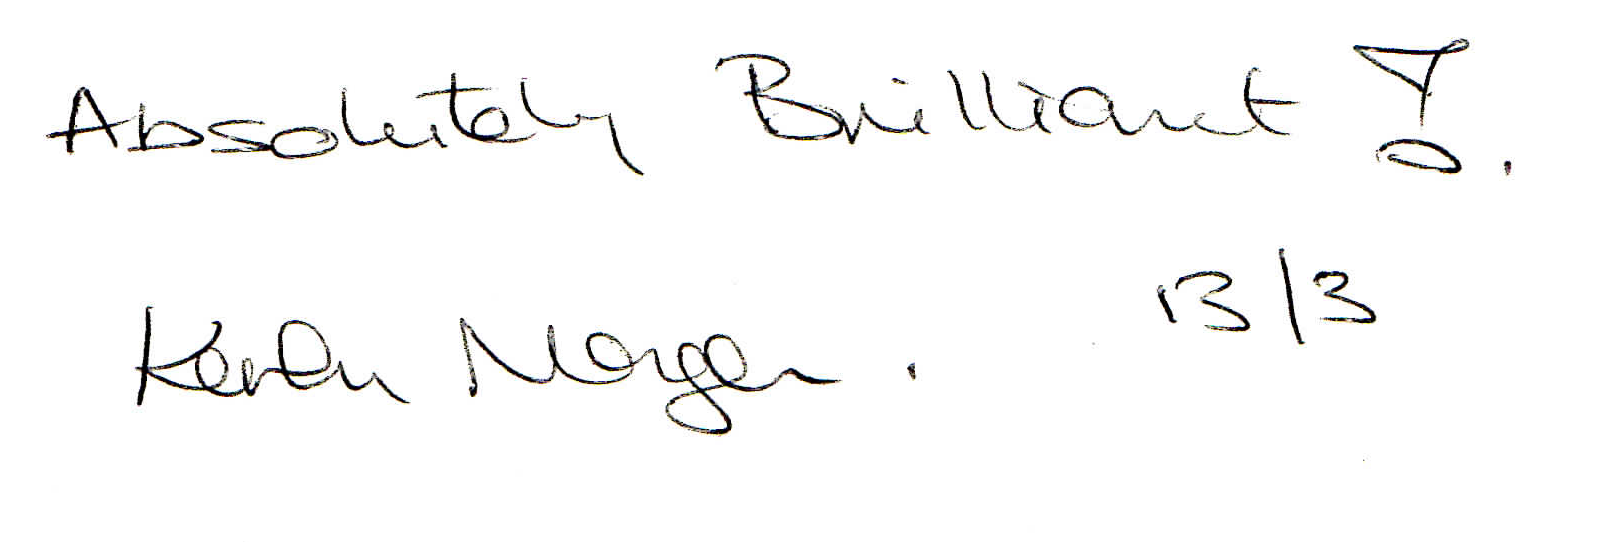 Absolutely Brilliant !.
Karen Morgan. 13/3